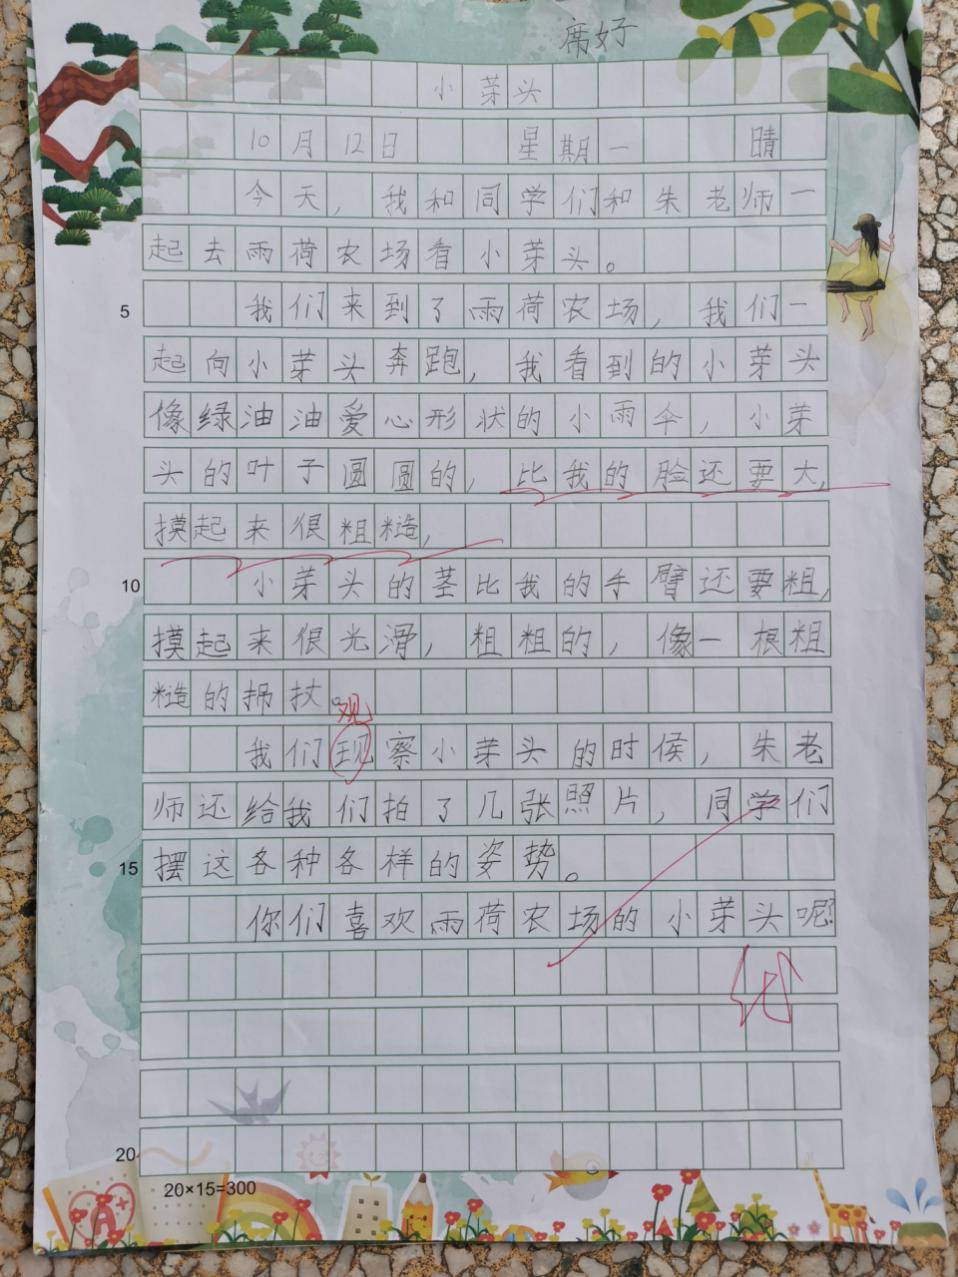 席好
小芽头
10月12日 星期一 晴
今天，我和同学们和朱老师一
起去雨荷农场看小芽头。
5 我们来到了雨荷农场，我们一
起向小芽头奔跑，我看到的小芽头
像绿油油爱心形状的小雨伞，小芽
头的叶子圆圆的，比我的脸还要大，
摸起来很粗糙，
10 小芽头的茎比我的手臂还要粗，
摸起来很光滑，粗粗的，像一根粗
糙的拐杖。
观
我们现察小芽头的时侯，朱老
师还给我们拍了几张照片，同学们
15 摆这各种各样的姿势。
你们喜欢雨荷农场的小芽头呢?
优
20
20×15=300